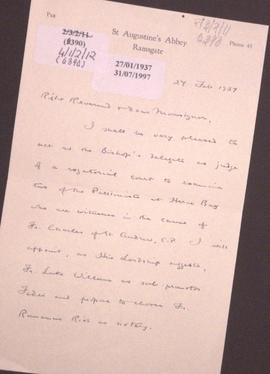 Pax
2/3/2/11
(0390)
4/1/2/12
(0390)
St Augustine's Abbey
Ramsgate
Phone 41
27/01/1937
31/07/1997
27 Feb 1937
Right Reverend & dear Monsignor,
I shall be very pleased to
act as the Bishop's Delegate as judge
of a rogatorial court to examine
two of the Passionists at Herne Bay
who are witnesses in the cause of
Fr. Charles of St Andrew, C.P. I will
appoint, as His Lordship suggests,
Fr. Luke Williams as sub promoter
Fidei and propose to choose Fr.
Romanus Rios as notary.